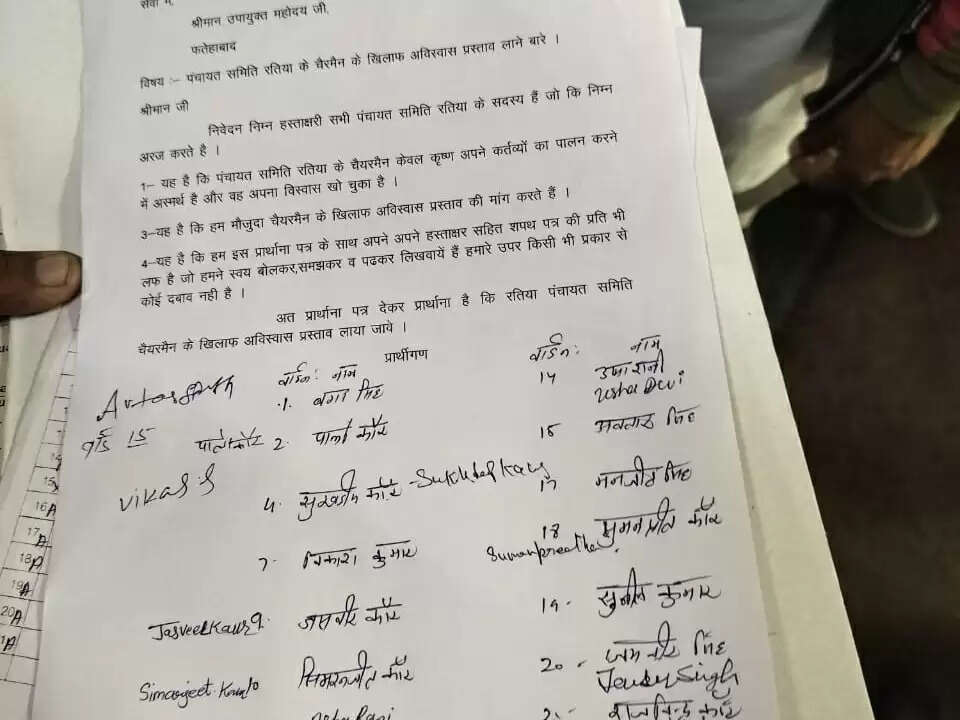 सेवा में,
श्रीमान उपायुक्त महोदय जी,
फतेहाबाद
विषय :– पंचायत समिति रतिया के चैरमैन के खिलाफ अविस्वास प्रस्ताव लाने बारे ।
श्रीमान जी
निवेदन निम्न हस्ताक्षरी सभी पंचायत समिति रतिया के सदस्य हैं जो कि निम्न
अरज करते है ।
1– यह है कि पंचायत समिति रतिया के चैयरमैन केवल कृष्ण अपने कर्तव्यों का पालन करने
में अस्मर्थ है और वह अपना विस्वास खो चुका है ।
3–यह है कि हम मौजुदा चैयरमैन के खिलाफ अविस्वास प्रस्ताव की मांग करते हैं ।
4–यह है कि हम इस प्रार्थाना पत्र के साथ अपने अपने हस्ताक्षर सहित शपथ पत्र की प्रति भी
लफ है जो हमने स्वय बोलकर,समझकर व पढकर लिखवायें हैं हमारे उपर किसी भी प्रकार से
कोई दबाव नही है ।
अत प्रार्थाना पत्र देकर प्रार्थाना है कि रतिया पंचायत समिति
चैयरमैन के खिलाफ अविस्वास प्रस्ताव लाया जावे ।
प्रार्थीगण
वार्डन: नाम
वार्डन: नाम
1. सिंह
14 उषा रानी
Usha Devi
वार्ड 15
2. पालो कौर
15 अवतार सिंह
Vikas
4. सुखदीप कौर
17 मनजीत सिंह
7. विकाश कुमार
18 सुमनप्रीत कौर
Jasveer Kaur 9. जसवीर कौर
19. सुनील कुमार
Simarjeet Kaur 10 सिमरनजीत कौर
20 - सिंह
Singh
Rani
21. राजविन्द्र कौर
15
16A
17A
18A
19A
20A